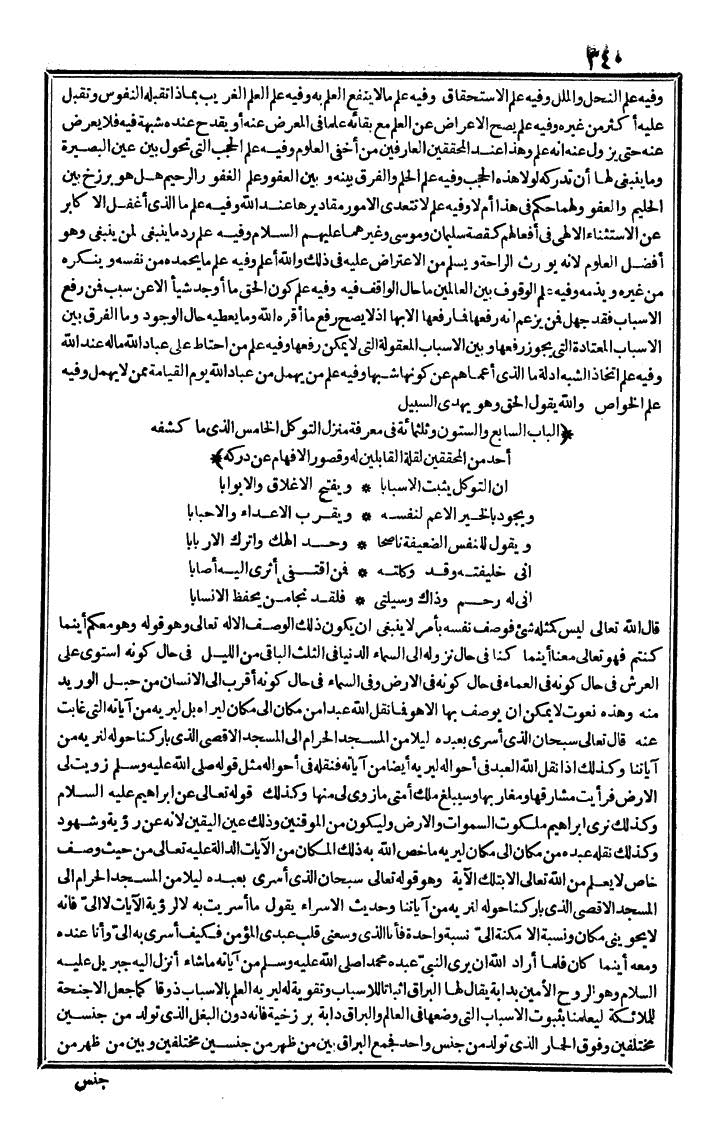 ٣٤٠
وفيه علم النحل والملل وفيه علم الاستحقاق وفيه علم ما لا ينتفع العلم به وفيه علم العلم الغريب بماذا تقبله النفوس وتقبل
عليه أكثر من غيره وفيه علم يصح الاعراض عن العلم مع بقائه علما في المعرض عنه أو يقدح عنده شبهة فيه فلا يعرض
عنه حتى يزول عنه انه علم وهذا عند المحققين العارفين من أخفى العلوم وفيه علم الحجب التي تحول بين عين البصيرة
وما ينبغي لها أن تدركه لولا هذه الحجب وفيه علم الحلم والفرق بينه و بين العفو وعلم الغفور الرحيم هل هو برزخ بين
الحليم والعفو ولهما حكم في هذا أم لا وفيه علم لا تتعدى الامور مقاديرها عند الله وفيه علم ما الذي أغفل الا كابر
عن الاستثناء الالهي في أفعالهم كقصة سليمان وموسى وغيرهما عليهم السلام وفيه علم رد ما ينبغي لمن ينبغي وهو
أفضل العلوم لانه يورث الراحة ويسلم من الاعتراض عليه في ذلك والله أعلم وفيه علم ما يحمده من نفسه وينكره
من غيره ويذمه وفيه علم الوقوف بين العالمين ما حال الواقف فيه وفيه علم كون الحق ما أوجد شيأ الا عن سبب فمن رفع
الاسباب فقد جهل فمن يزعم انه رفعها فما رفعها الا بها اذ لا يصح رفع ما أقره الله وما يعطيه حال الوجود وما الفرق بين
الاسباب المعتادة التي يجوز رفعها و بين الاسباب المعقولة التي لا يمكن رفعها وفيه علم من احتاط على عباد الله ماله عند الله
وفيه علم اتخاذ الشبه ادلة ما الذي أعماهم عن كونها شبها وفيه علم من يهمل من عباد الله يوم القيامة ممن لا يهمل وفيه
علم الخواص والله يقول الحق وهو يهدى السبيل
﴿الباب السابع والستون وثلثمائة في معرفة منزل التوكل الخامس الذي ما كشفه
أحد من المحققين لقلة القابلين له وقصور الافهام عن دركه﴾
ان التوكل يثبت الاسبابا * ويفتح الاغلاق والابوابا
ويجود بالخير الاعم لنفسه * ويقرب الاعداء والاحبابا
ويقول للنفس الضعيفة ناصحا * وحد الهك واترك الاربابا
انى خليفته وقد وكلته * فمن اقتفى أثرى اليه أصابا
انى له رحم وذاك وسيلتى * فلقد نجا من يحفظ الانسابا
قال الله تعالى ليس كمثله شئ فوصف نفسه بأمر لا ينبغى ان يكون ذلك الوصف الا له تعالى وهو قوله وهو معكم أينما
كنتم فهو تعالى معنا أينما كنا في حال نزوله الى السماء الدنيا في الثلث الباقي من الليل في حال كونه استوى على
العرش في حال كونه في العماء في حال كونه في الارض وفي السماء في حال كونه أقرب الى الانسان من حبل الوريد
منه وهذه نعوت لا يمكن ان يوصف بها الا هو فما نقل الله عبدا من مكان الى مكان ليراه بل ليريه من آياته التي غابت
عنه قال تعالى سبحان الذي أسرى بعبده ليلا من المسجد الحرام الى المسجد الاقصى الذي باركنا حوله لنريه من
آياتنا وكذلك اذا نقل الله العبد في أحواله ليريه أيضا من آياته فنقله في أحواله مثل قوله صلى الله عليه وسلم زويت لى
الارض فرأيت مشارقها ومغاربها وسيبلغ ملك أمتى ما زوى لى منها وكذلك قوله تعالى عن ابراهيم عليه السلام
وكذلك نرى ابراهيم ملكوت السموات والارض وليكون من الموقنين وذلك عين اليقين لانه عن رؤية وشهود
وكذلك نقله عبده من مكان الى مكان ليريه ما خص الله به ذلك المكان من الآيات الدالة عليه تعالى من حيث وصف
خاص لا يعلم من الله تعالى الا بتلك الآية وهو قوله تعالى سبحان الذي أسرى بعبده ليلا من المسجد الحرام الى
المسجد الاقصى الذي باركنا حوله لنريه من آياتنا وحديث الاسراء يقول ما أسريت به الا لرؤية الآيات لا الىّ فانه
لا يحوينى مكان ونسبة الامكنة الىّ نسبة واحدة فأنا الذي وسعنى قلب عبدى المؤمن فكيف أسرى به الىّ وأنا عنده
ومعه أينما كان فلما أراد الله ان يرى النبيّ عبده محمدا صلى الله عليه وسلم من آياته ما شاء أنزل اليه جبريل عليه
السلام وهو الروح الأمين بدابة يقال لها البراق اثباتا للاسباب وتقوية له ليريه العلم بالاسباب ذوقا كما جعل الاجنحة
للملائكة ليعلمنا بثبوت الاسباب التي وضعها في العالم والبراق دابة برزخية فانه دون البغل الذي تولد من جنسين
مختلفين وفوق الحمار الذي تولد من جنس واحد فجمع البراق بين من ظهر من جنسين مختلفين وبين من ظهر من
جنس